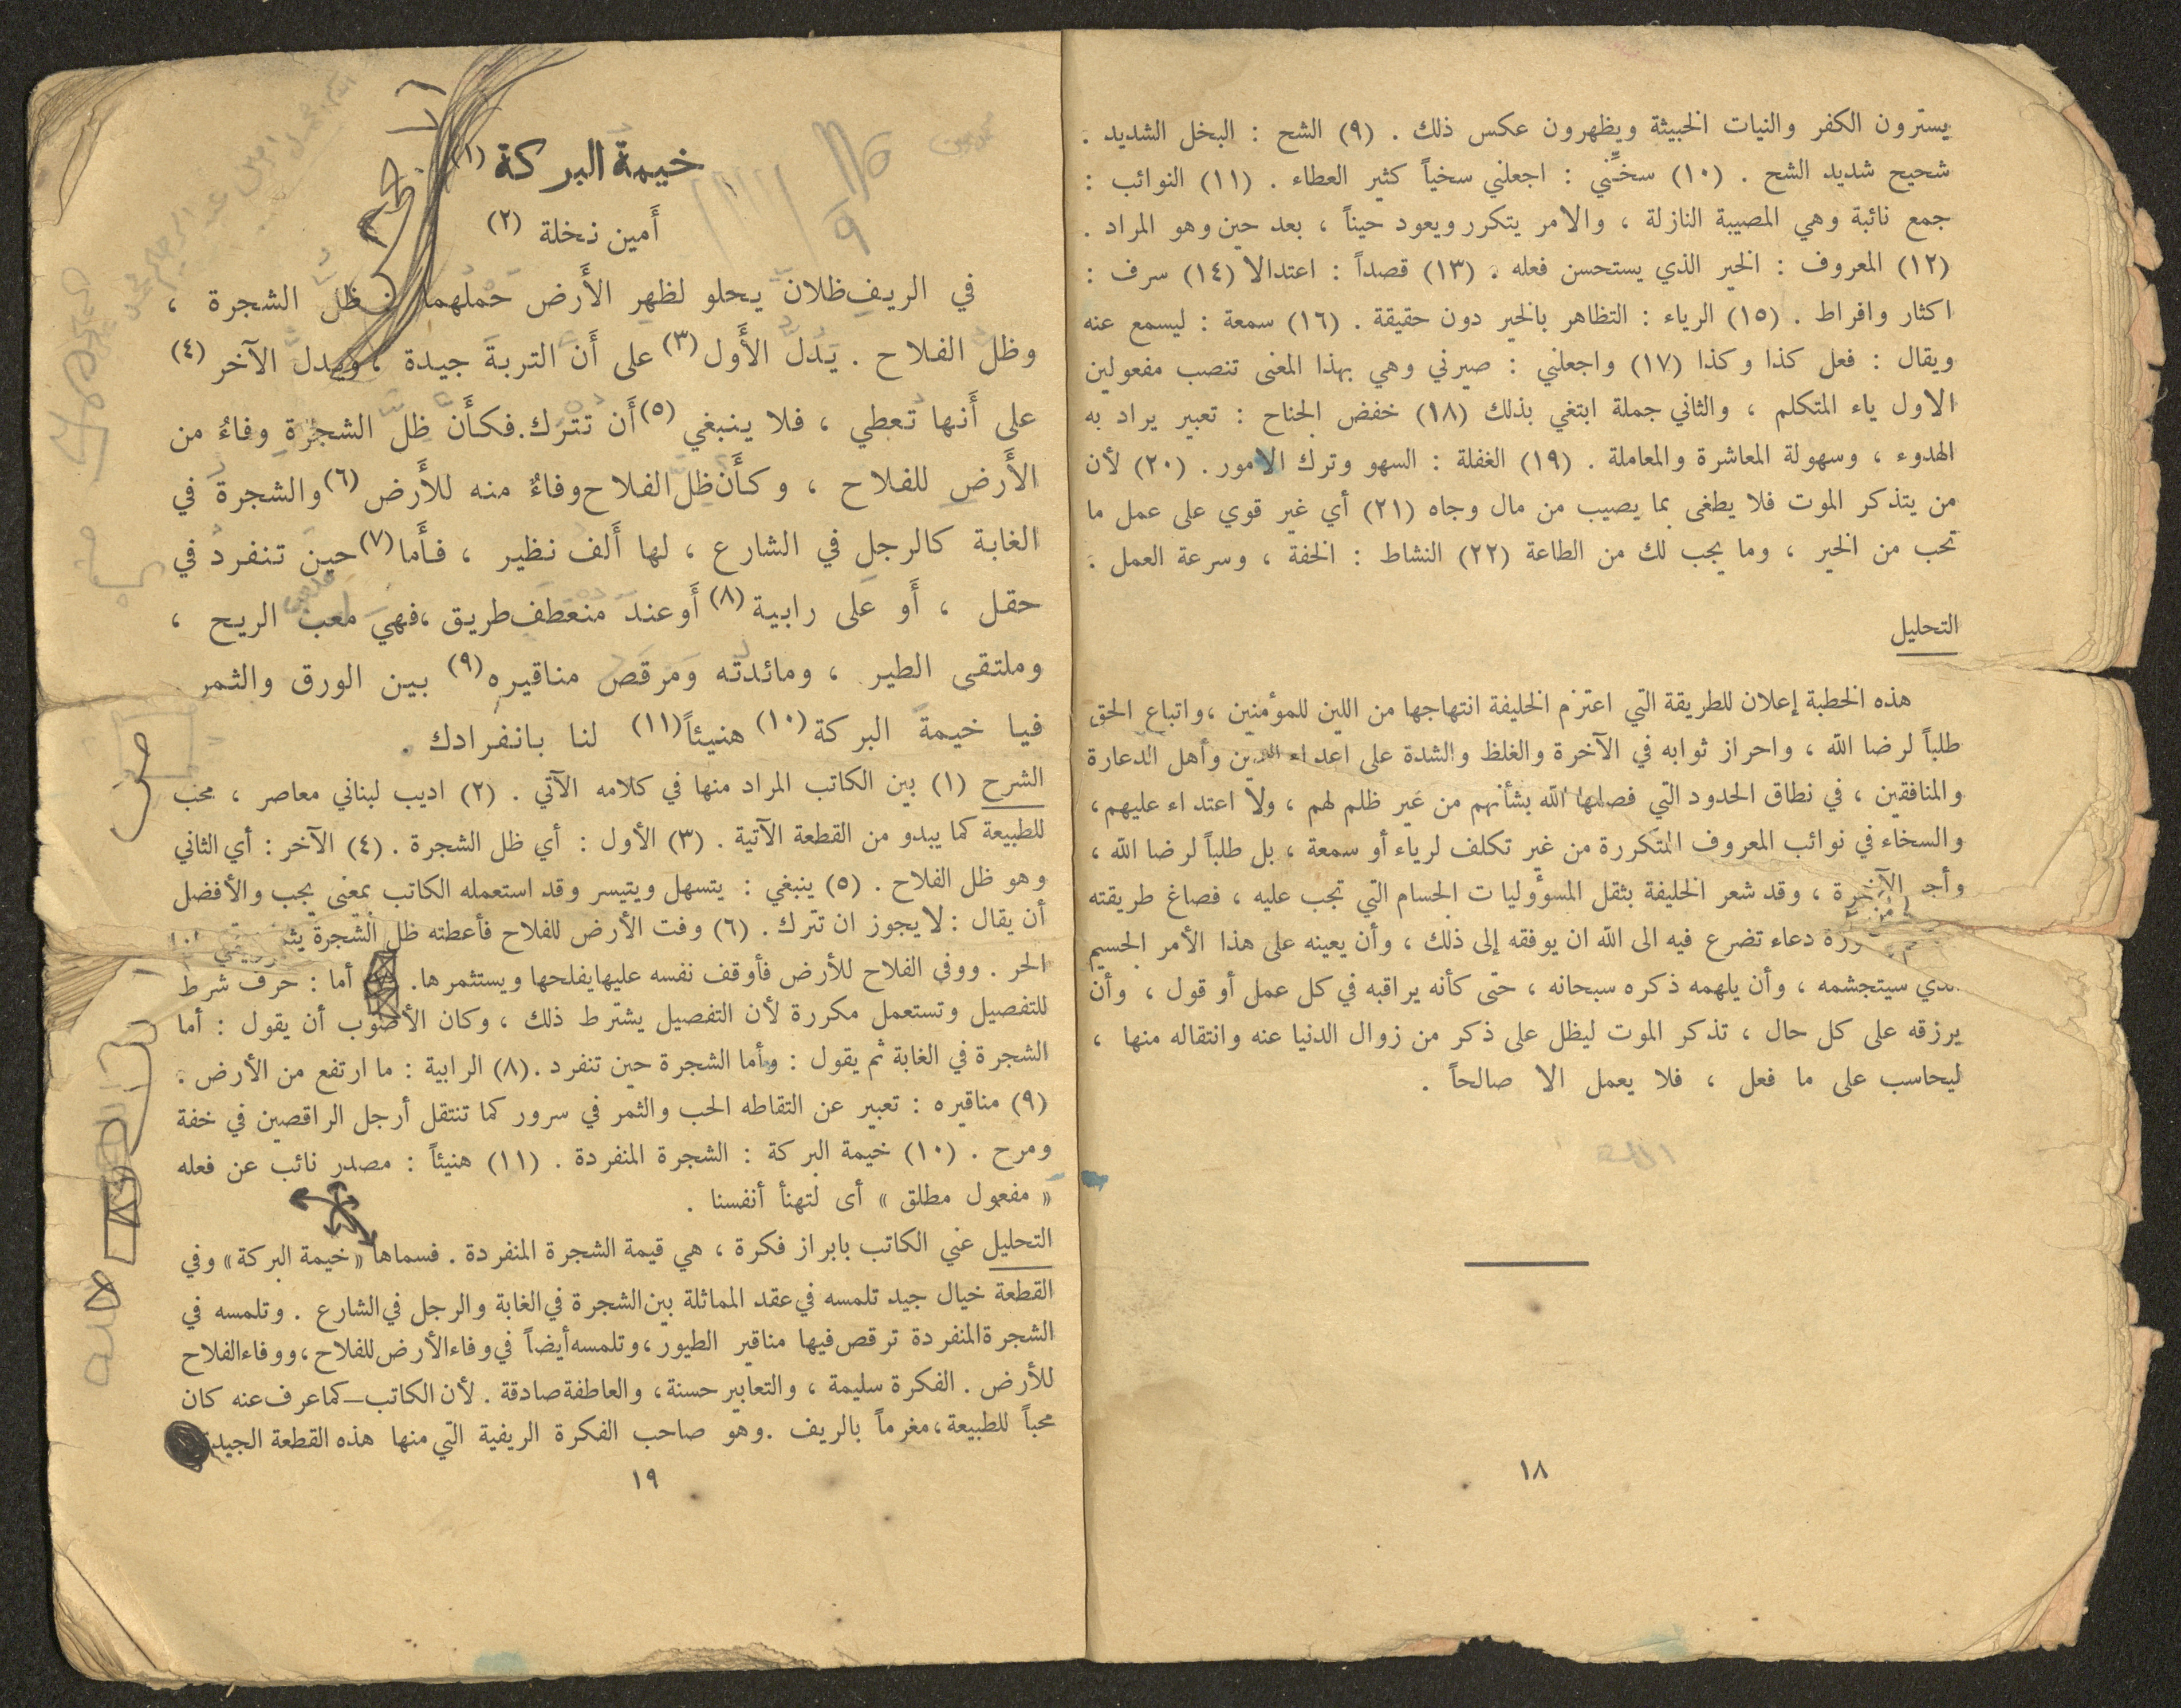 يسترون الكفر والنيات الخبيثة ويظهرون عكس ذلك . (٩) الشح : البخل الشديد .
شحيح شديد الشح . (١٠) سخنِّي : اجعلني سخياً كثير العطاء . (١١) النوائب :
جمع نائبة وهي المصيبة النازلة ، والامر يتكرر ويعود حيناً ، بعد حين وهو المراد .
(١٢) المعروف : الخير الذي يستحسن فعله . (١٣) قصداً : اعتدالا (١٤) سرف :
اكثار وافراط . (١٥) الرياء : التظاهر بالخير دون حقيقة . (١٦) سمعة : ليسمع عنه
ويقال : فعل كذا وكذا (١٧) واجعلني : صيرني وهي بهذا المعنى تنصب مفعولين
الاول ياء المتكلم ، والثاني جملة ابتغي بذلك (١٨) خفض الجناح : تعبير يراد به
الهدوء ، وسهولة المعاشرة والمعاملة . (١٩) الغفلة : السهو وترك الامور . (٢٠) لأن
من يتذكر الموت فلا يطغى بما يصيب من مال وجاه (٢١) أي غير قوي على عمل ما
تحب من الخير ، وما يجب لك من الطاعة (٢٢) النشاط : الخفة ، وسرعة العمل .
التحليل
هذه الخطبة إعلان للطريقة التي اعتزم الخليفة انتهاجها من اللين للمؤمنين ، واتباع الحق
طلباً لرضا الله ، واحراز ثوابه في الآخرة والغلظ والشدة على اعداء الدين وأهل الدعارة
والمنافقين ، في نطاق الحدود التي فصلها الله بشأنهم من غير ظلم لهم ، ولا اعتداء عليهم ،
والسخاء في نوائب المعروف المتكررة من غير تكلف لرياء أو سمعة ، بل طلباً لرضا الله ،
وأجر الآخرة ، وقد شعر الخليفة بثقل المسؤوليات الجسام التي تجب عليه ، فصاغ طريقته
دعاء تضرع فيه الى الله ان يوفقه إلى ذلك ، وأن يعينه على هذا الأمر الجسيم
الذي سيتجشمه ، وأن يلهمه ذكره سبحانه ، حتى كأنه يراقبه في كل عمل أو قول ، وأن
يرزقه على كل حال ، تذكر الموت ليظل على ذكر من زوال الدنيا عنه وانتقاله منها ،
ليحاسب على ما فعل ، فلا يعمل الا صالحاً .
١٨
خيمة البركة (١)
أَمين نخلة (٢)
في الريف ظلان يحلو لظهر الأَرض حملهما ظل الشجرة ،
وظل الفلاح . يدل الأَول (٣) على أَن التربة جيدة ، ويدل الآخر (٤)
على أَنها تعطي ، فلا ينبغي (٥) أَن تترك . فكأَن ظل الشجرة وفاءٌ من
الأَرض للفلاح ، وكأَن ظل الفلاح وفاءٌ منه للأَرض (٦) والشجرة في
الغابة كالرجل في الشارع ، لها أَلف نظير ، فأَما (٧) حين تنفرد في
حقل ، أَو على رابية (٨) أَو عند منعطف طريق ، فهي الريح ،
وملتقى الطير ، ومائدته ومرقص مناقيره (٩) بين الورق والثمر
فيا خيمة البركة (١٠) هنيئاً (١١) لنا بانفرادك .
الشرح (١) بين الكاتب المراد منها في كلامه الآتي . (٢) اديب لبناني معاصر ، محب
للطبيعة كما يبدو من القطعة الآتية . (٣) الأول : أي ظل الشجرة . (٤) الآخر : أي الثاني
وهو ظل الفلاح . (٥) ينبغي : يتسهل ويتيسر وقد استعمله الكاتب بمعنى يجب والأفضل
أن يقال : لا يجوز ان تترك . (٦) وفت الأرض للفلاح فأعطته ظل الشجرة
الحر . ووفى الفلاح للأرض فأوقف نفسه عليها يفلحها ويستثمرها . أما : حرف شرط
للتفصيل وتستعمل مكررة لأن التفصيل يشترط ذلك ، وكان الأصوب أن يقول : أما
الشجرة في الغابة ثم يقول : وأما الشجرة حين تنفرد . (٨) الرابية : ما ارتفع من الأرض .
(٩) مناقيره : تعبير عن التقاطه الحب والثمر في سرور كما تنتقل أرجل الراقصين في خفة
ومرح . (١٠) خيمة البركة : الشجرة المنفردة . (١١) هنيئاً : مصدر نائب عن فعله
« مفعول مطلق » أى لتهنأ أنفسنا .
التحليل عني الكاتب بابراز فكرة ، هي قيمة الشجرة المنفردة . فسماها « خيمة البركة » وفي
القطعة خيال جيد تلمسه في عقد المماثلة بين الشجرة في الغابة والرجل في الشارع . وتلمسه في
الشجرة المنفردة ترقص فيها مناقير الطيور ، وتلمسه أيضاً في وفاء الأرض للفلاح ، ووفاء الفلاح
للأرض . الفكرة سليمة ، والتعابير حسنة ، والعاطفة صادقة . لأن الكاتب – كما عرف عنه كان
محباً للطبيعة ، مغرماً بالريف . وهو صاحب الفكرة الريفية التي منها هذه القطعة الجيدة
١٩